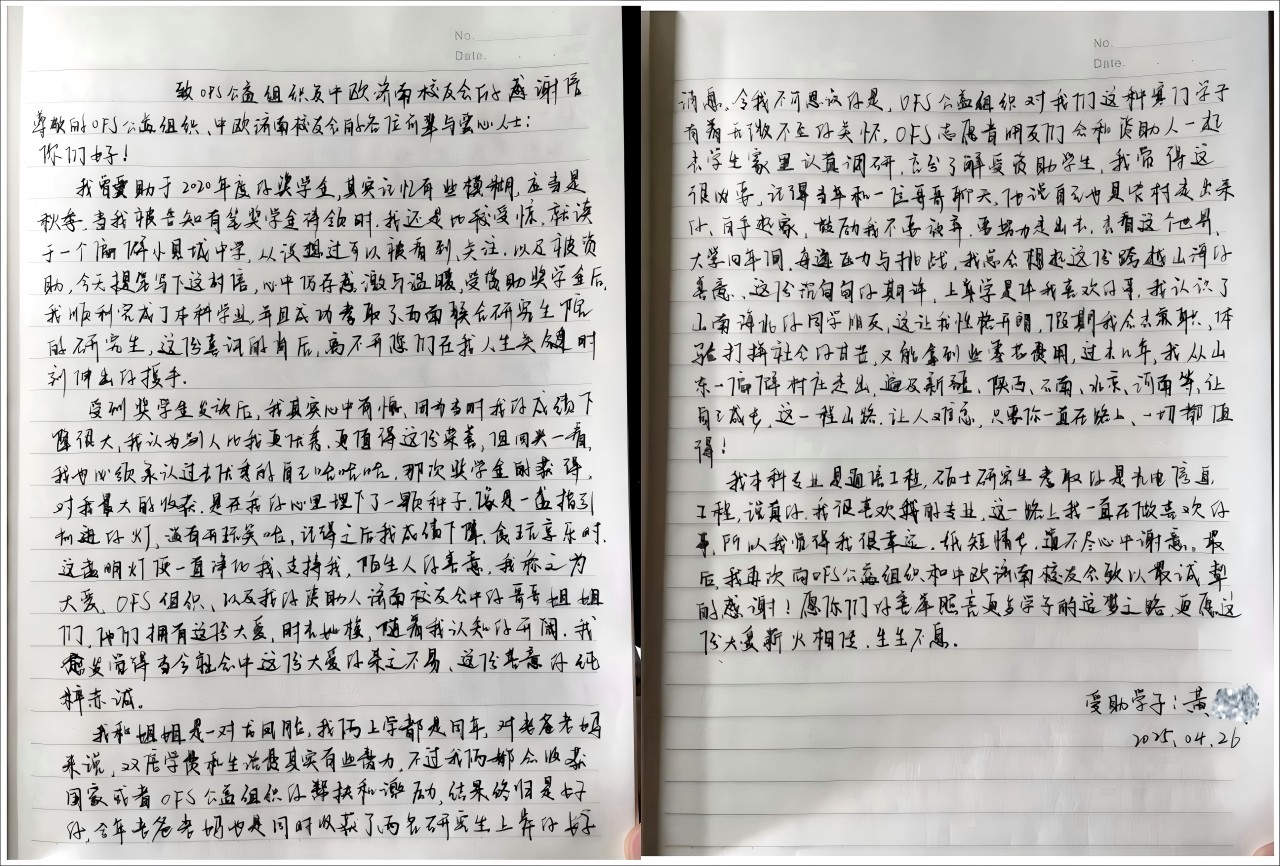 No.
Date.
致OFS公益组织及中欧济南校友会的感谢信
尊敬的OFS公益组织、中欧济南校友会的各位前辈与爱心人士：
你们好！
我曾受助于2020年度的奖学金，其实记忆有些模糊，应当是
秋季，当我被告知有笔奖学金待领时，我还是比较受惊，就读
于一个偏僻小县城中学，从没想过可以被看到、关注，以及被资
助，今天提笔写下这封信，心中仍存感激与温暖，受资助奖学金后，
我顺利完成了本科学业，并且成功考取了西南联合研究生院
的研究生，这份喜讯的背后，离不开您们在我人生关键时
刻伸出的援手。
受到奖学金发放后，我其实心中有愧，因为当时我的成绩下
降很大，我认为别人比我更优秀，更值得这份荣誉，但回头一看，
我也必须承认过去优秀的自己哈哈哈，那次奖学金的获得，
对我最大的收获，是在我的心里埋下了一颗种子，像是一盏指引
前进的灯，没有开玩笑哈，记得之后我成绩下降、贪玩享乐时，
这盏明灯便一直津他我、支持我，陌生人的善意，我称之为
大爱，OFS组织、以及我的资助人济南校友会中的哥哥姐姐
们，他们拥有这份大爱，时至如核，随着我认知的开阔，我
愈发觉得当今社会中这份大爱的来之不易、这份善意的纯
粹赤诚。
我和姐姐是一对龙凤胎，我俩上学都是同年，对老爸老妈
来说，双倍学费和生活费其实有些费力，不过我俩都会收获
国家或者OFS公益组织的帮扶和激励，结果终归是好
的，今年老爸老妈也是同时收获了两名研究生上岸的好
No.
Date.
消息。令我不可思议的是，OFS公益组织对我们这种寒门学子
有着无微不至的关怀，OFS志愿者朋友们会和资助人一起
去学生家里认真调研，充分了解受资助学生，我觉得这
很必要，记得当年和一位哥哥聊天，他说自己也是农村走出来
的，白手起家，鼓励我不要放弃，要努力走出去，去看这个世界，
大学四年间，每逢压力与挑战，我总会想起这份跨越山海的
善意、这份沉甸甸的期许，上岸学是件我喜欢的事，我认识了
山南海北的同学朋友，这让我性格开朗，假期我会去兼职，体
验打拼社会的甘苦，又能拿到些零花费用，过去几年，我从山
东一偏僻村庄走出，遍及新疆、陕西、云南、北京、河南等，让
自己成长，这一程山路，让人难忘，只要你一直在路上，一切都值
得！
我本科专业是通信工程，硕士研究生考取的是光电信息
工程，说真的，我很喜欢我的专业，这一路上我一直在做喜欢的
事，所以我觉得我很幸运，纸短情长，道不尽心中谢意。最
后，我再次向OFS公益组织和中欧济南校友会致以最诚挚
的感谢！愿你们的善举照亮更多学子的追梦之路，更愿这
份大爱薪火相传，生生不息。
受助学子：黄
2025.04.26